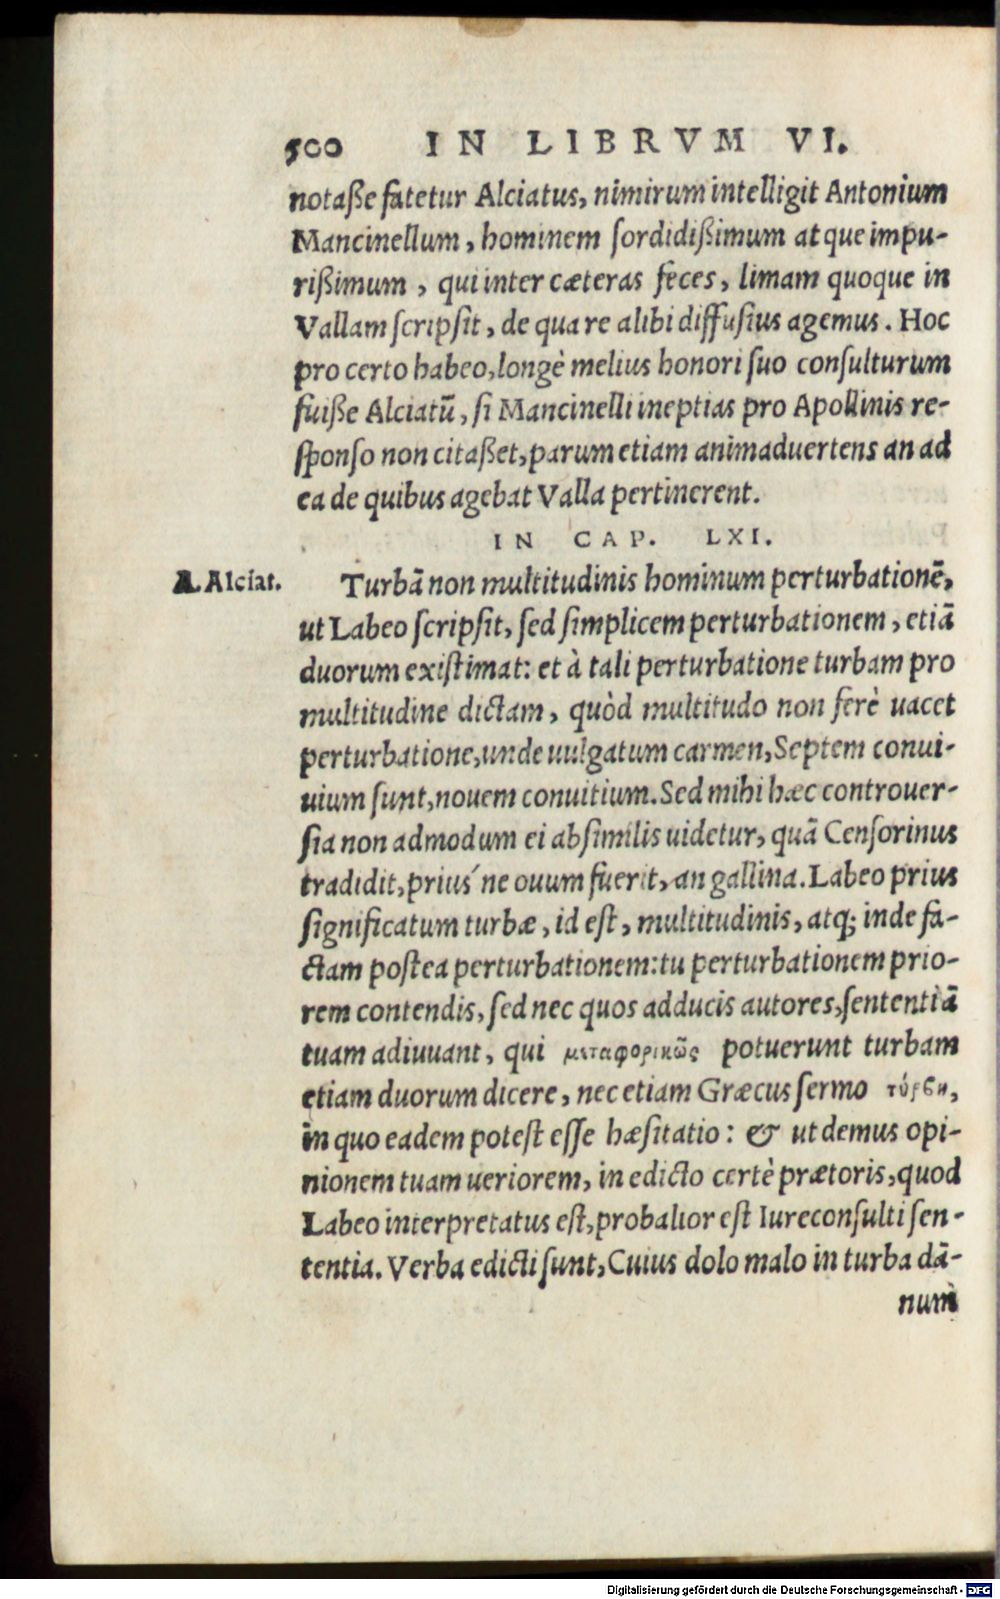 500 IN LIBRVM VI.
notaße fatetur Alciatus, nimirum intelligit Antonium
Mancinellum, hominem ſordidißimum atque impu-
rißimum, qui inter cæteras feces, limam quoque in
Vallam ſcripſit, de qua re alibi diffuſius agemus. Hoc
pro certo habeo, longè melius honori ſuo conſulturum
fuiße Alciatū, ſi Mancinelli ineptias pro Apollinis re-
ſponſo non citaßet, parum etiam animaduertens an ad
ea de quibus agebat Valla pertinerent.
IN CAP. LXI.
A. Alciat. Turbā non multitudinis hominum perturbationē,
ut Labeo ſcripſit, ſed ſimplicem perturbationem, etiā
duorum exiſtimat: et à tali perturbatione turbam pro
multitudine dictam, quòd multitudo non ferè uacet
perturbatione, unde uulgatum carmen, Septem conui-
uium ſunt, nouem conuitium. Sed mihi hæc controuer-
ſia non admodum ei abſimilis uidetur, quā Cenſorinus
tradidit, prius´ne ouum fuerit, an gallina. Labeo prius
ſignificatum turbæ, id eſt, multitudinis, atq; inde fa-
ctam poſtea perturbationem: tu perturbationem prio-
rem contendis, ſed nec quos adducis autores, ſententiā
tuam adiuuant, qui μεταφορικῶς potuerunt turbam
etiam duorum dicere, nec etiam Græcus ſermo τύρβη,
in quo eadem poteſt eſſe hæſitatio: & ut demus opi-
nionem tuam ueriorem, in edicto certè prætoris, quod
Labeo interpretatus eſt, probalior eſt Iureconſulti ſen-
tentia. Verba edicti ſunt, Cuius dolo malo in turba dā-
num
Digitalisierung gefördert durch die Deutsche Forschungsgemeinschaft - DFG